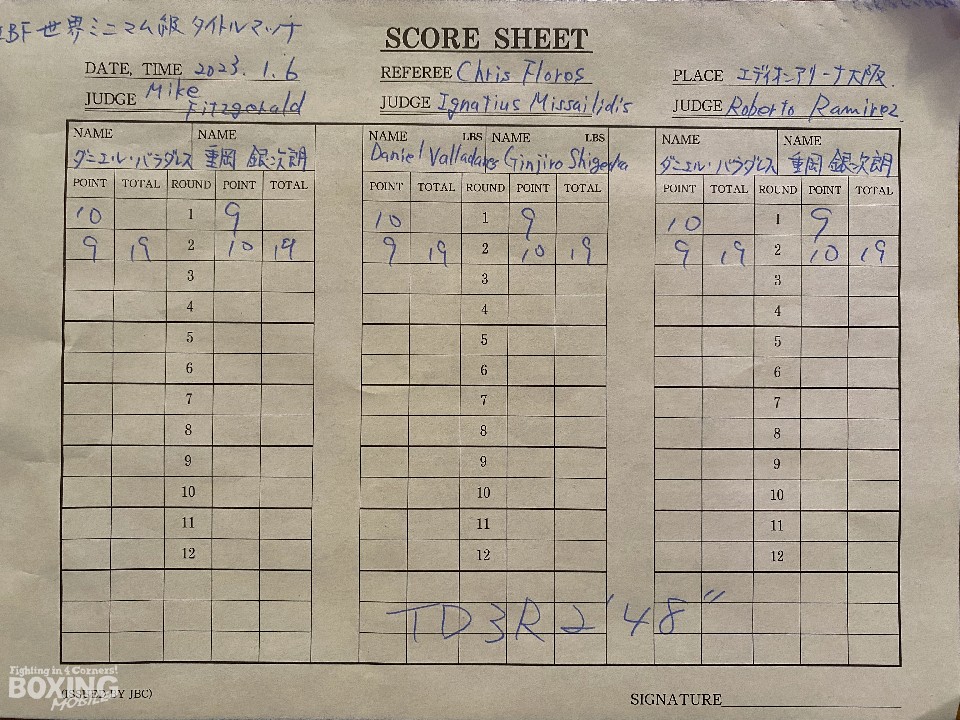 IBF世界ミニマム級 タイトルマッチ
SCORE SHEET
DATE, TIME 2023. 1. 6
REFEREE Chris Flores
PLACE エディオンアリーナ大阪
JUDGE Mike Fitzgerald
JUDGE Ignatius Missailidis
JUDGE Roberto Ramirez
NAME NAME NAME LBS NAME LBS NAME NAME
ダニエル・バラダレス 重岡 銀次朗 Daniel Valladares Ginjiro Shigeoka ダニエル・バラダレス 重岡 銀次朗
POINT TOTAL ROUND POINT TOTAL POINT TOTAL ROUND POINT TOTAL POINT TOTAL ROUND POINT TOTAL
10 1 9 10 1 9 10 1 9
9 19 2 10 19 9 19 2 10 19 9 19 2 10 19
3 3 3
4 4 4
5 5 5
6 6 6
7 7 7
8 8 8
9 9 9
10 10 10
11 11 11
12 12 12
TD3R2'48"
Fighting in 4 Corners!
BOXING
MOBILE
(ISSUED BY JBC)
SIGNATURE